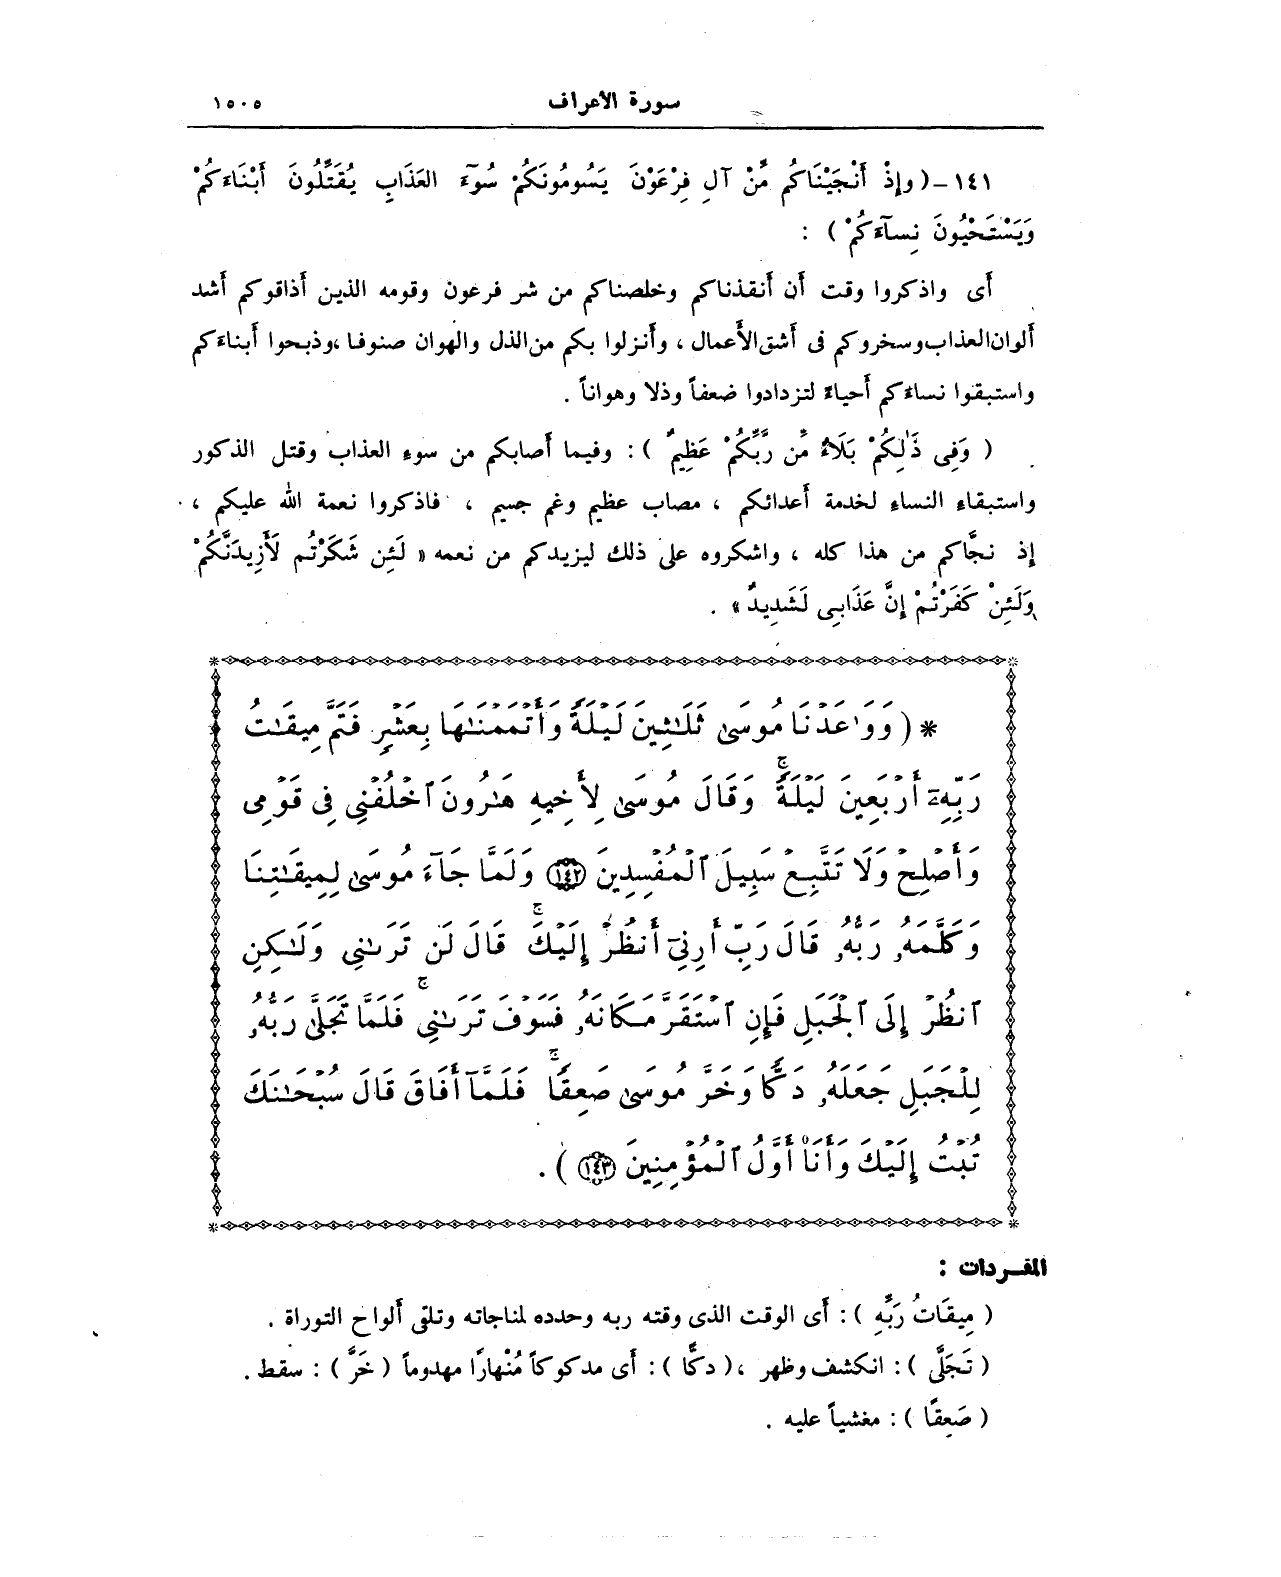 سورة الأعراف ١٥٠٥
١٤١ - ( وإِذْ أَنْجَيْنَاكُم مِّنْ آلِ فِرْعَوْنَ يَسُومُونَكُمْ سُوٓءَ العَذَابِ يُقَتِّلُونَ أَبْنَاءَكُمْ
وَيَسْتَحْيُونَ نِسآءَكُمْ ) :
أَى واذكروا وقت أَن أَنقذناكم وخلصناكم من شر فرعون وقومه الذين أَذاقوكم أَشد
أَلوان العذاب وسخروكم فى أَشق الأَعمال ، وأَنزلوا بكم من الذل والهوان صنوفا ، وذبحوا أَبناءَكم
واستبقوا نساءَكم أَحياءً لتزدادوا ضعفاً وذلا وهواناً .
( وَفِى ذَٰلِكُمْ بَلَاءٌ مِّن رَّبِّكُمْ عَظِيمٌ ) : وفيما أَصابكم من سوءِ العذاب وقتل الذكور
واستبقاءِ النساءِ لخدمة أَعدائكم ، مصاب عظيم وغم جسيم ، فاذكروا نعمة الله عليكم ،
إِذ نجَّاكم من هذا كله ، واشكروه على ذلك ليزيدكم من نعمه « لَئِن شَكَرْتُم لَأَزِيدَنَّكُمْ
وَلَئِنْ كَفَرْتُمْ إِنَّ عَذَابِى لَشَدِيدٌ » .
* ( وَوَٰعَدْنَا مُوسَىٰ ثَلَـٰثِينَ لَيْلَةً وَأَتْمَمْنَـٰهَا بِعَشْرٍ فَتَمَّ مِيقَـٰتُ
رَبِّهِۦٓ أَرْبَعِينَ لَيْلَةً ۚ وَقَالَ مُوسَىٰ لِأَخِيهِ هَـٰرُونَ ٱخْلُفْنِى فِى قَوْمِى
وَأَصْلِحْ وَلَا تَتَّبِعْ سَبِيلَ ٱلْمُفْسِدِينَ ١٤٢ وَلَمَّا جَآءَ مُوسَىٰ لِمِيقَـٰتِنَا
وَكَلَّمَهُۥ رَبُّهُۥ قَالَ رَبِّ أَرِنِىٓ أَنظُرْ إِلَيْكَ ۚ قَالَ لَن تَرَىٰنِى وَلَـٰكِنِ
ٱنظُرْ إِلَى ٱلْجَبَلِ فَإِنِ ٱسْتَقَرَّ مَكَانَهُۥ فَسَوْفَ تَرَىٰنِى ۚ فَلَمَّا تَجَلَّىٰ رَبُّهُۥ
لِلْجَبَلِ جَعَلَهُۥ دَكًّا وَخَرَّ مُوسَىٰ صَعِقًا ۚ فَلَمَّآ أَفَاقَ قَالَ سُبْحَـٰنَكَ
تُبْتُ إِلَيْكَ وَأَنَا۠ أَوَّلُ ٱلْمُؤْمِنِينَ ١٤٣ ) .
المفـردات :
( مِيقَاتُ رَبِّهِ ) : أَى الوقت الذى وقته ربه وحدده لمناجاته وتلقى أَلواح التوراة .
( تَجَلَّى ) : انكشف وظهر ، ( دكًّا ) : أَى مدكوكاً مُنْهارًا مهدوماً ( خَرَّ ) : سقط .
( صَعِقًا ) : مغشياً عليه .